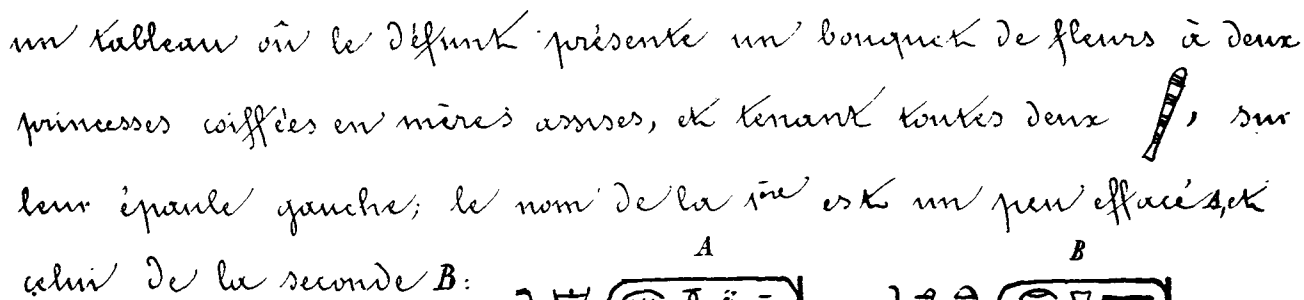 un tableau où le défunt présente un bouquet de fleurs à deux
princesses coiffées en mères assises, et tenant toutes deux , sur
leur épaule gauche; le nom de la 1ère est un peu effacé A, et
celui de la seconde B:
A B